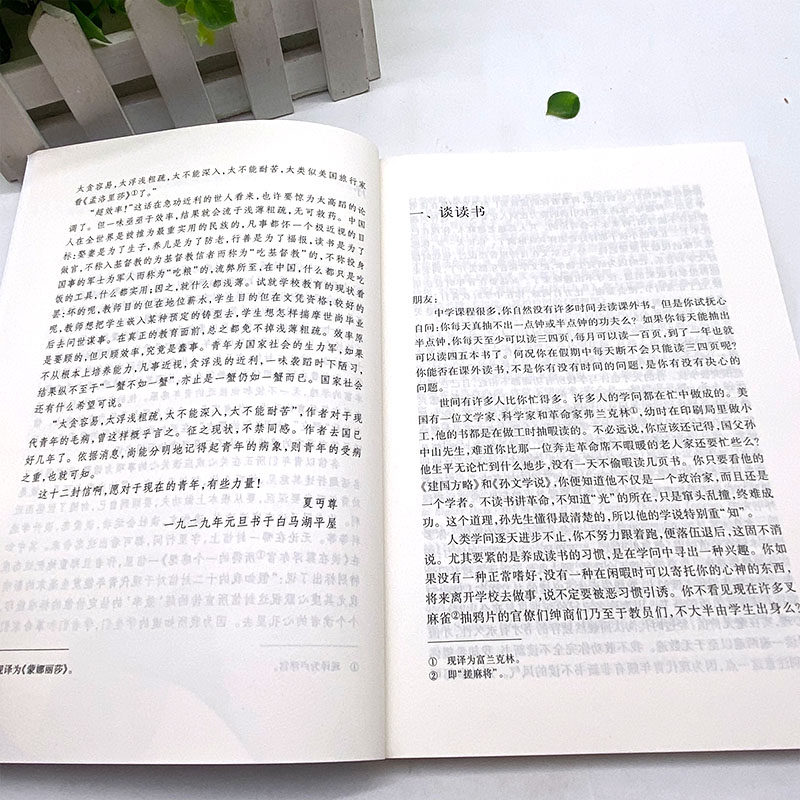 太贪容易，太浮浅粗疏，太不能深入，太不能耐苦，太类似美国旅行家
看《孟洛里莎》①了。”
“超效率！”这话在急功近利的世人看来，也许要惊为太高蹈的论
调了。但一味亟亟于效率，结果就会流于浅薄粗疏，无可救药。中国
人在全世界是被推为最重实用的民族的，凡事都怀一个极近视的目
标：娶妻是为了生子，养儿是为了防老，行善是为了福报，读书是为了
做官，不称入基督教的为基督教信者而称为“吃基督教”的，不称投身
国事的军士为军人而称为“吃粮”的，流弊所至，在中国，什么都只是吃
饭的工具，什么都实用；因之，就什么都浅薄。试就学校教育的现状看
罢：坏的呢，教师目的但在地位薪水，学生目的但在文凭资格；较好的
呢，教师想把学生嵌入某种预定的铸型去，学生想怎样揣摩世尚毕业
后去问世谋事。在真正的教育面前，总之都免不掉浅薄粗疏。效率原
是要顾的，但只顾效率，究竟是蠢事。青年为国家社会的生力军，如果
不从根本上培养能力，凡事近视，贪浮浅的近利，一味袭蹈时下陋习，
结果纵不至于“一蟹不如一蟹”，亦止是一蟹仍如一蟹而已。国家社会
还有什么希望可说。
“太贪容易，太浮浅粗疏，太不能深入，太不能耐苦”，作者对于现
代青年的毛病，曾这样概乎言之。征之现状，不禁同感。作者去国已
好几年了。依据消息，尚能分明地记得起青年的病象，则青年的受病
之重，也就可知。
这十二封信啊，愿对于现在的青年，有些力量！
夏丏尊
一九二九年元旦书于白马湖平屋
现译为《蒙娜丽莎》。
一、谈读书
朋友：
中学课程很多，你自然没有许多时间去读课外书。但是你试抚心
自问：你每天真抽不出一点钟或半点钟的功夫么？如果你每天能抽出
半点钟，你每天至少可以读三四页，每月可以读一百页，到了一年也就
可以读四五本书了。何况你在假期中每天断不会只能读三四页呢？
你能否在课外读书，不是你有没有时间的问题，是你有没有决心的
问题。
世间有许多人比你忙得多。许多人的学问都在忙中做成的。美
国有一位文学家、科学家和革命家弗兰克林①，幼时在印刷局里做小
工，他的书都是在做工时抽暇读的。不必远说，你应该还记得，国父孙
中山先生，难道你比那一位奔走革命席不暇暖的老人家还要忙些么？
他生平无论忙到什么地步，没有一天不偷暇读几页书。你只要看他的
《建国方略》和《孙文学说》，你便知道他不仅是一个政治家，而且还是
一个学者。不读书讲革命，不知道“光”的所在，只是窜头乱撞，终难成
功。这个道理，孙先生懂得最清楚的，所以他的学说特别重“知”。
人类学问逐天进步不止，你不努力跟着跑，便落伍退后，这固不消
说。尤其要紧的是养成读书的习惯，是在学问中寻出一种兴趣。你如
果没有一种正常嗜好，没有一种在闲暇时可以寄托你的心神的东西，
将来离开学校去做事，说不定要被恶习惯引诱。你不看见现在许多叉
麻雀②抽鸦片的官僚们绅商们乃至于教员们，不大半由学生出身么？
① 现译为富兰克林。
② 即“搓麻将”。